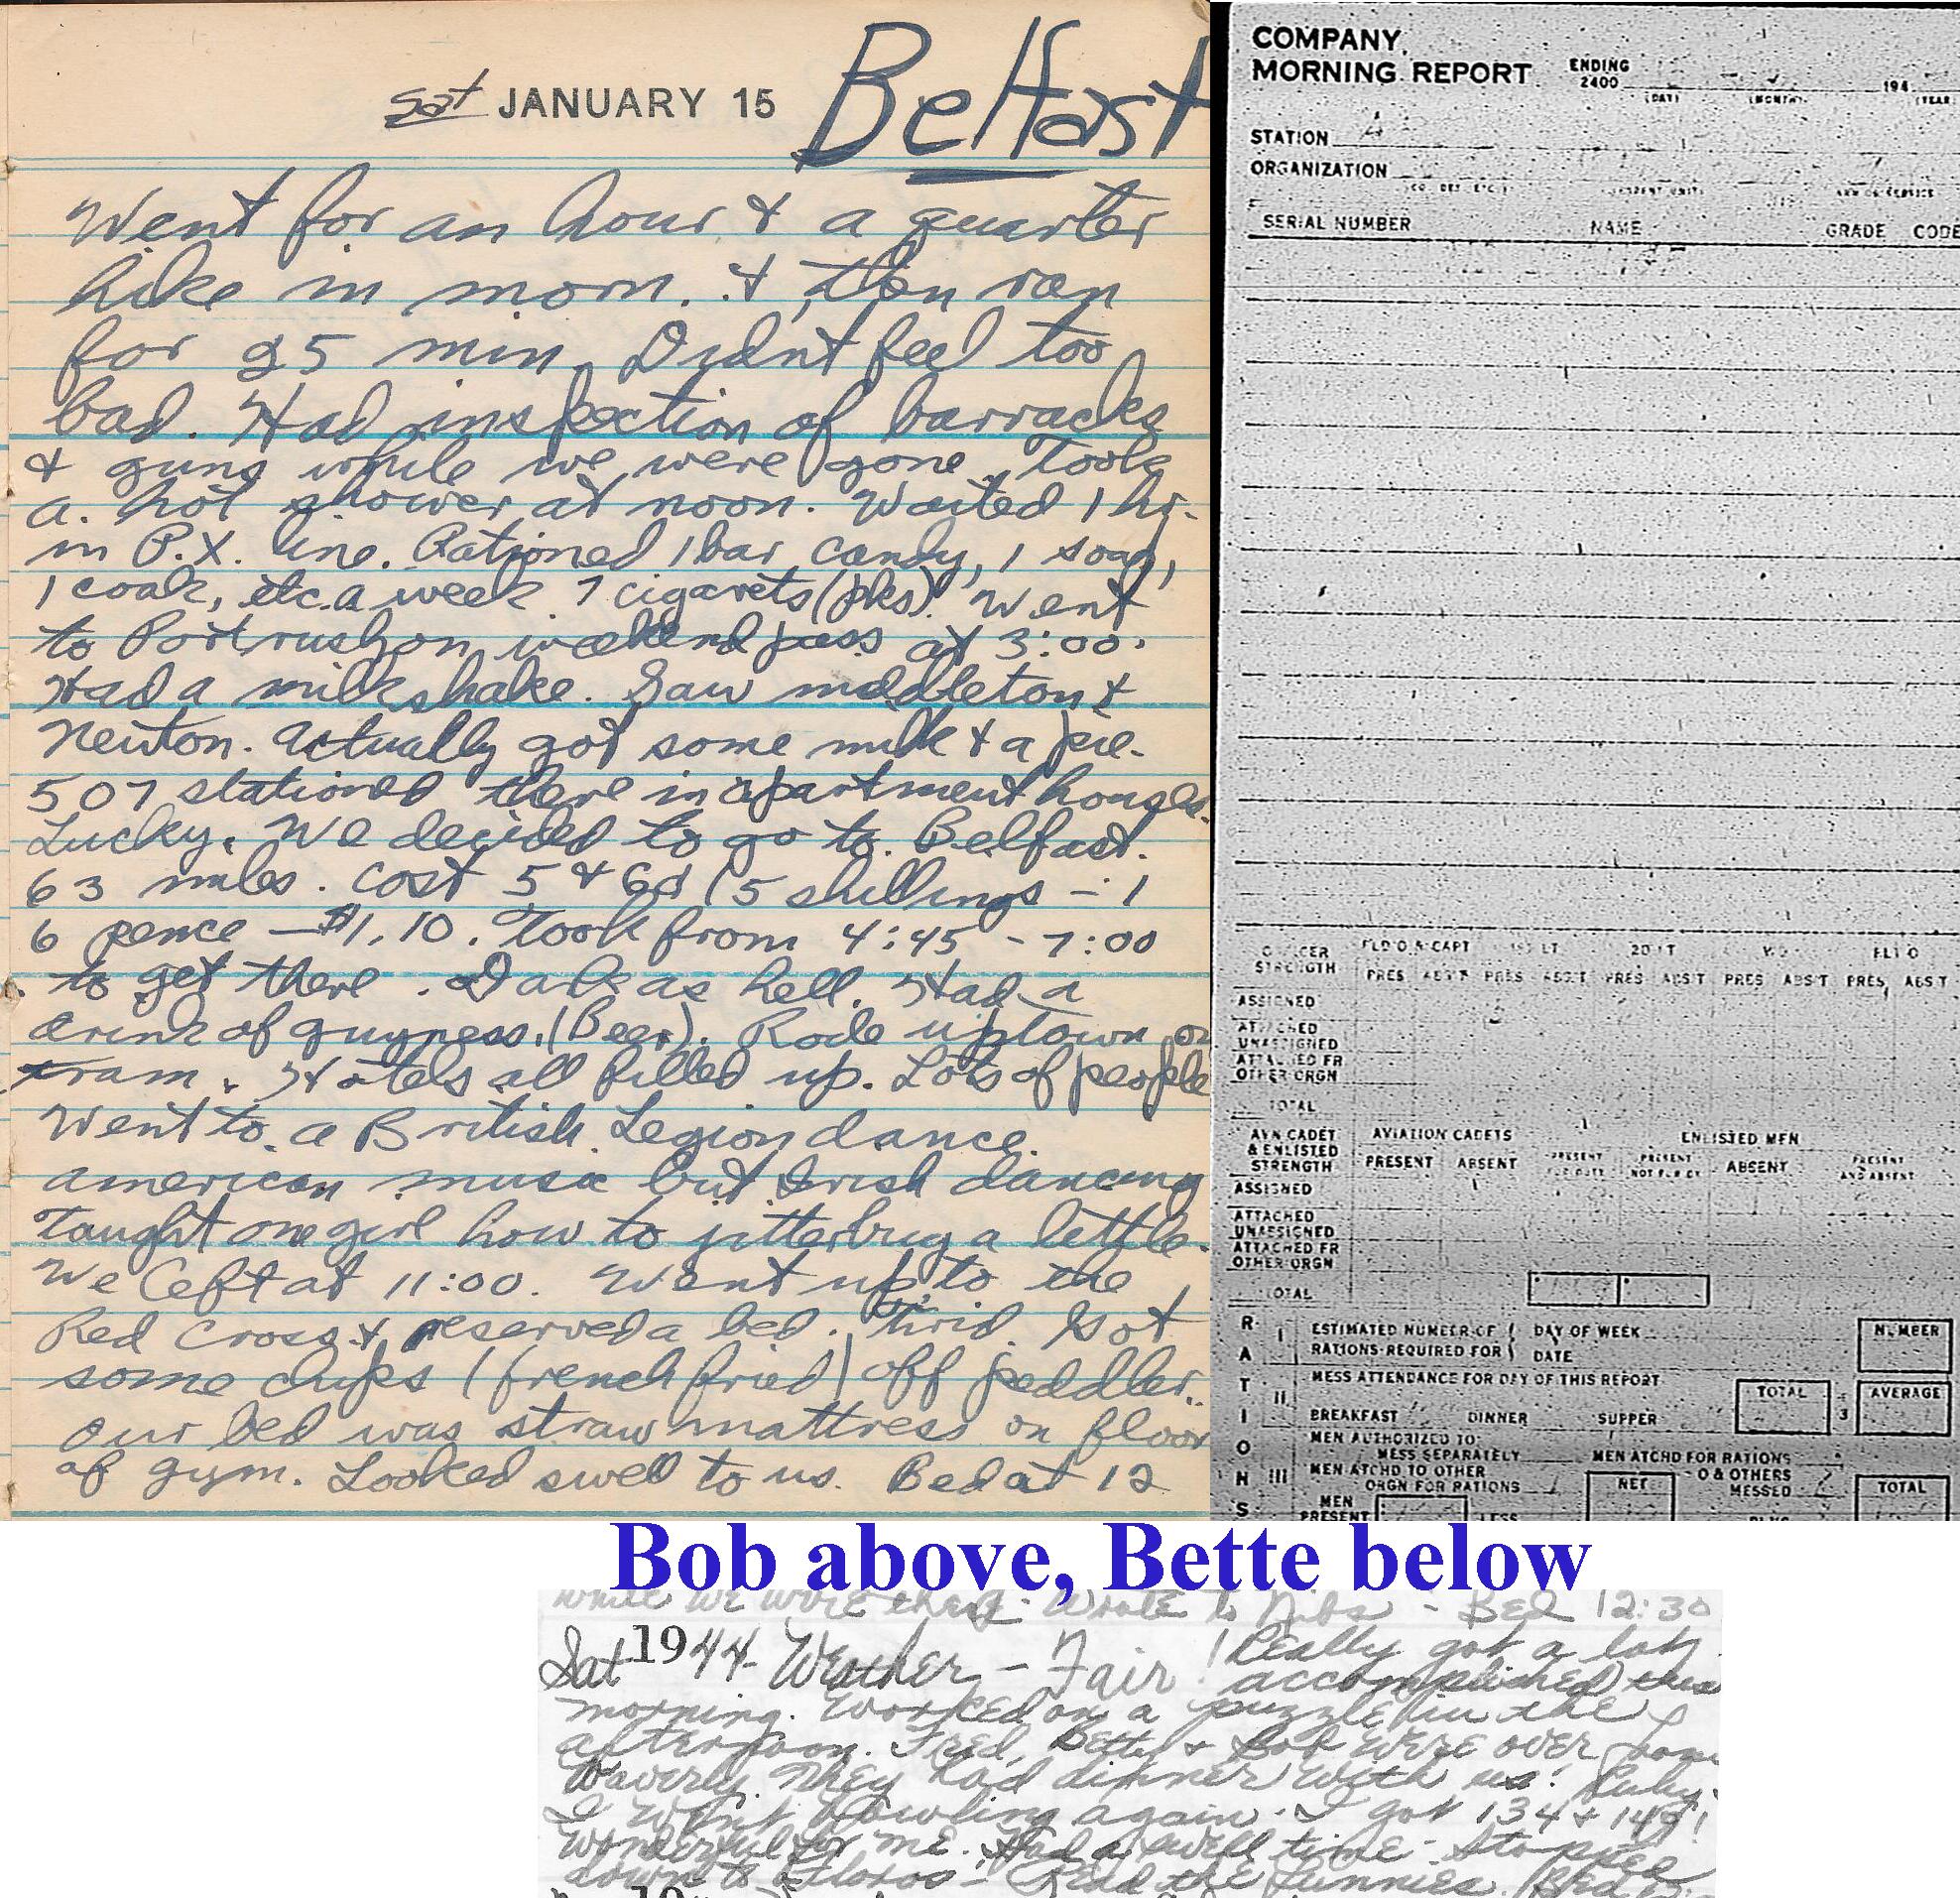 Sat JANUARY 15 Belfast
Went for an hour & a quarter
hike in morn. & then ran
for 25 min. Didnt feel too
bad. Had inspection of barracks
& guns while we were gone. Took
a. hot shower at noon. Waited 1 hr.
in P.X. line. Rationed 1 bar candy, 1 soap,
1 coak, etc. a week 7 cigarets (pks). Went
to Portrush on weekend pass at 3:00.
Had a milkshake. Saw Middleton &
Newton. Actually got some milk & a pie.
507 stationed there in apartment houses.
Lucky. We decided to go to Belfast.
63 miles. Cost 5 & 6d (5 shillings - 1
6 pence - $1.10. Took from 4:45 - 7:00
to get there. Dark as hell. Had a
drink of guyness. (Beer). Rode uptown on
tram. Hotels all filled up. Lots of people
Went to a British Legion dance.
American music but Irish dancing
Taught one girl how to jitterbug a little.
We left at 11:00. Went up to the
Red Cross & reserved a bed. Got
some chips (french fried) off peddler.
Our bed was straw mattress on floor
of gym. Looked swell to us. Bed at 12
COMPANY
MORNING REPORT ENDING 2400 194
(DAY) (MONTH) (YEAR
STATION
ORGANIZATION
SERIAL NUMBER NAME GRADE CODE
OFFICER STRENGTH FLD O & CAPT 1ST LT 2D LT W O FLT O
PRES ABS'T PRES ABS'T PRES ABS'T PRES ABS'T PRES ABS'T
ASSIGNED
ATTACHED UNASSIGNED
ATTACHED FR OTHER ORGN
TOTAL
AVN CADET & ENLISTED STRENGTH AVIATION CADETS ENLISTED MEN
PRESENT ABSENT PRESENT FOR DUTY PRESENT NOT FOR DY ABSENT PRESENT AND ABSENT
ASSIGNED
ATTACHED UNASSIGNED
ATTACHED FR OTHER ORGN
TOTAL
RATIONS
I ESTIMATED NUMBER OF RATIONS REQUIRED FOR DAY OF WEEK DATE NUMBER
II MESS ATTENDANCE FOR DAY OF THIS REPORT
BREAKFAST DINNER SUPPER TOTAL 3 AVERAGE
III MEN AUTHORIZED TO MESS SEPARATELY MEN ATCHD FOR RATIONS
MEN ATCHD TO OTHER ORGN FOR RATIONS NET O & OTHERS MESSED TOTAL
MEN PRESENT LESS PLUS
Bob above, Bette below
while we were there. Wrote to Nibs - Bed 12:30
Sat 1944 Weather - Fair! Really got a lot
accomplished this
morning. Worked on a puzzle in the
afternoon. Fred, Betty & Bob were over from
Waverly. They had dinner with us! Ruby
I went bowling again. I got 134 & 149!
Wonderful for me. Had a swell time - Stopped
down to - Read the funnies. Bed